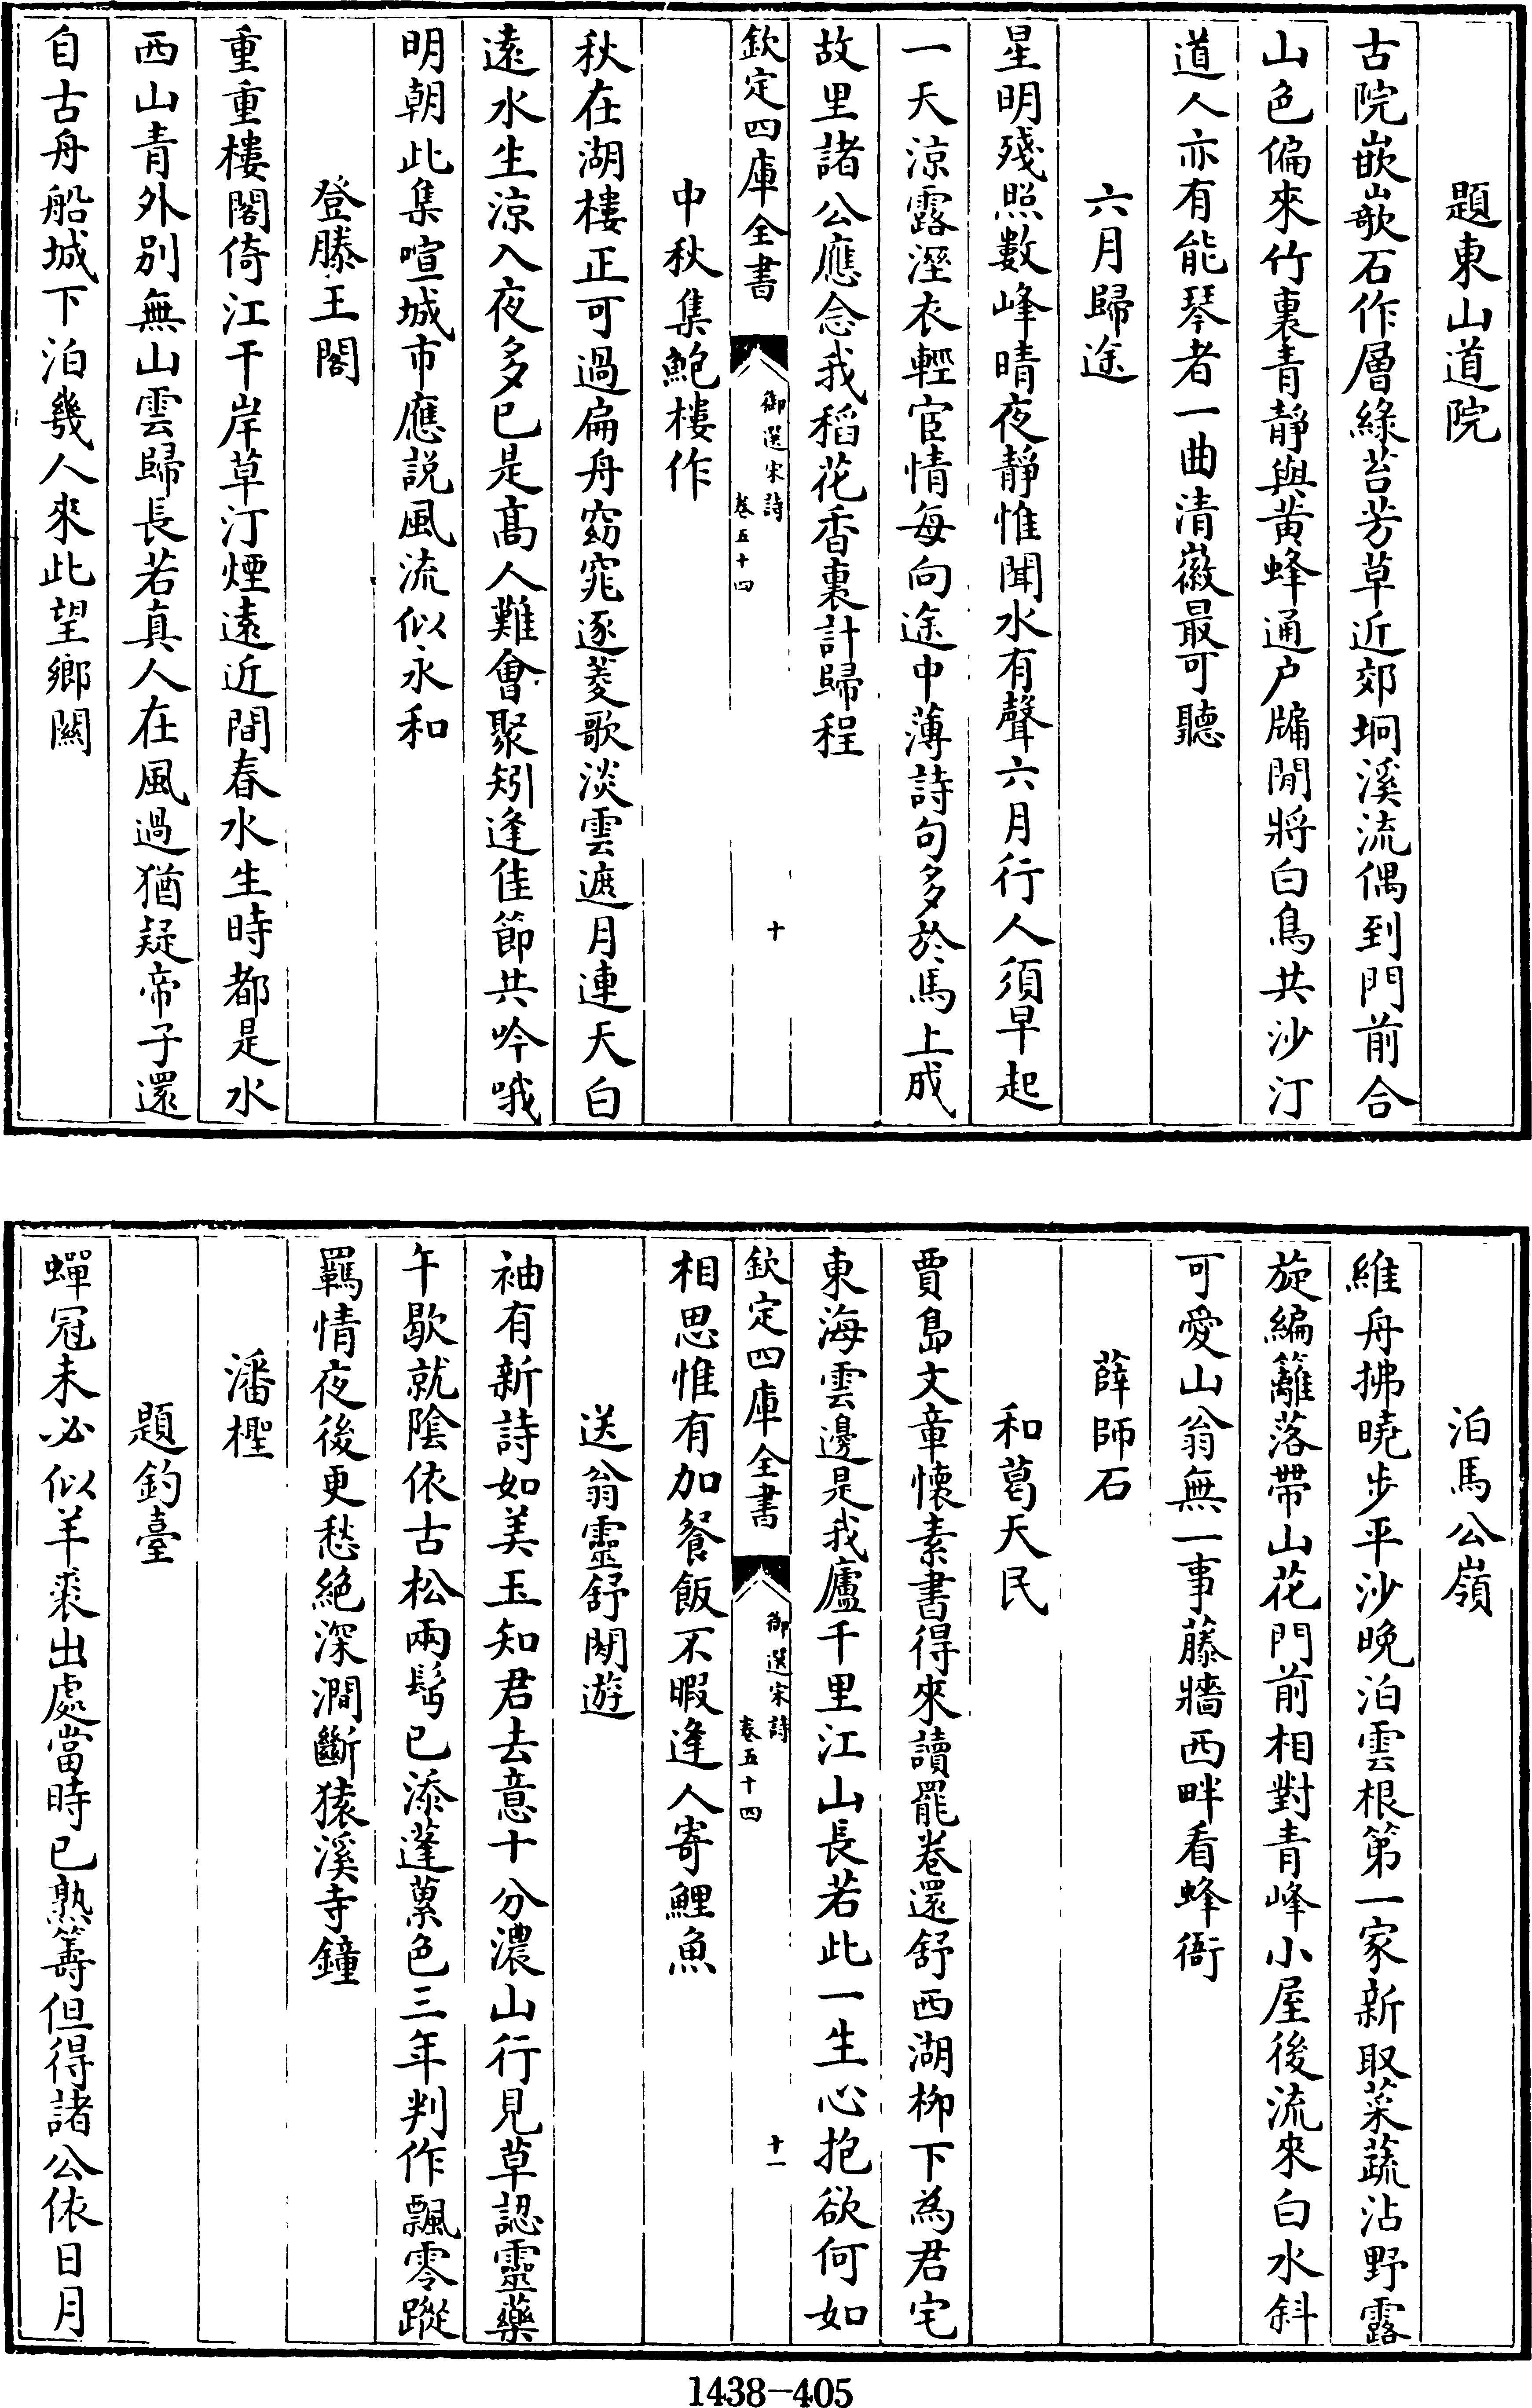 題東山道院
古院嵌嶔石作層綠苔芳草近郊坰溪流偶到門前合
山色偏來竹裏青靜與黄蜂通户牖閒將白鳥共沙汀
道人亦有能琴者一曲清徽最可聽
六月歸途
星明殘照數峰晴夜靜惟聞水有聲六月行人須早起
一天涼露溼衣輕宦情每向途中薄詩句多於馬上成
故里諸公應念我稻花香裏計歸程
欽定四庫全書
御選宋詩
卷五十四
十
中秋集鮑樓作
秋在湖樓正可過扁舟窈窕逐菱歌淡雲遮月連天白
遠水生涼入夜多已是高人難會聚矧逢佳節共吟哦
明朝此集喧城市應説風流似永和
登滕王閣
重重樓閣倚江干岸草汀煙遠近間春水生時都是水
西山青外别無山雲歸長若真人在風過猶疑帝子還
自古舟船城下泊幾人來此望鄉關
泊馬公嶺
維舟拂曉步平沙晚泊雲根第一家新取菜蔬沾野露
旋編籬落帶山花門前相對青峰小屋後流來白水斜
可愛山翁無一事藤牆西畔看蜂衙
薛師石
和葛天民
賈島文章懷素書得來讀罷卷還舒西湖柳下為君宅
東海雲邊是我廬千里江山長若此一生心抱欲何如
欽定四庫全書
御選宋詩
卷五十四
十一
相思惟有加餐飯不暇逢人寄鯉魚
送翁靈舒閩遊
袖有新詩如美玉知君去意十分濃山行見草認靈藥
午歇就陰依古松兩髩已添蓬藟色三年判作飄零蹤
羈情夜後更愁絶深澗斷猿溪寺鐘
潘檉
題釣臺
蟬冠未必似羊裘出處當時已熟籌但得諸公依日月
1438—405